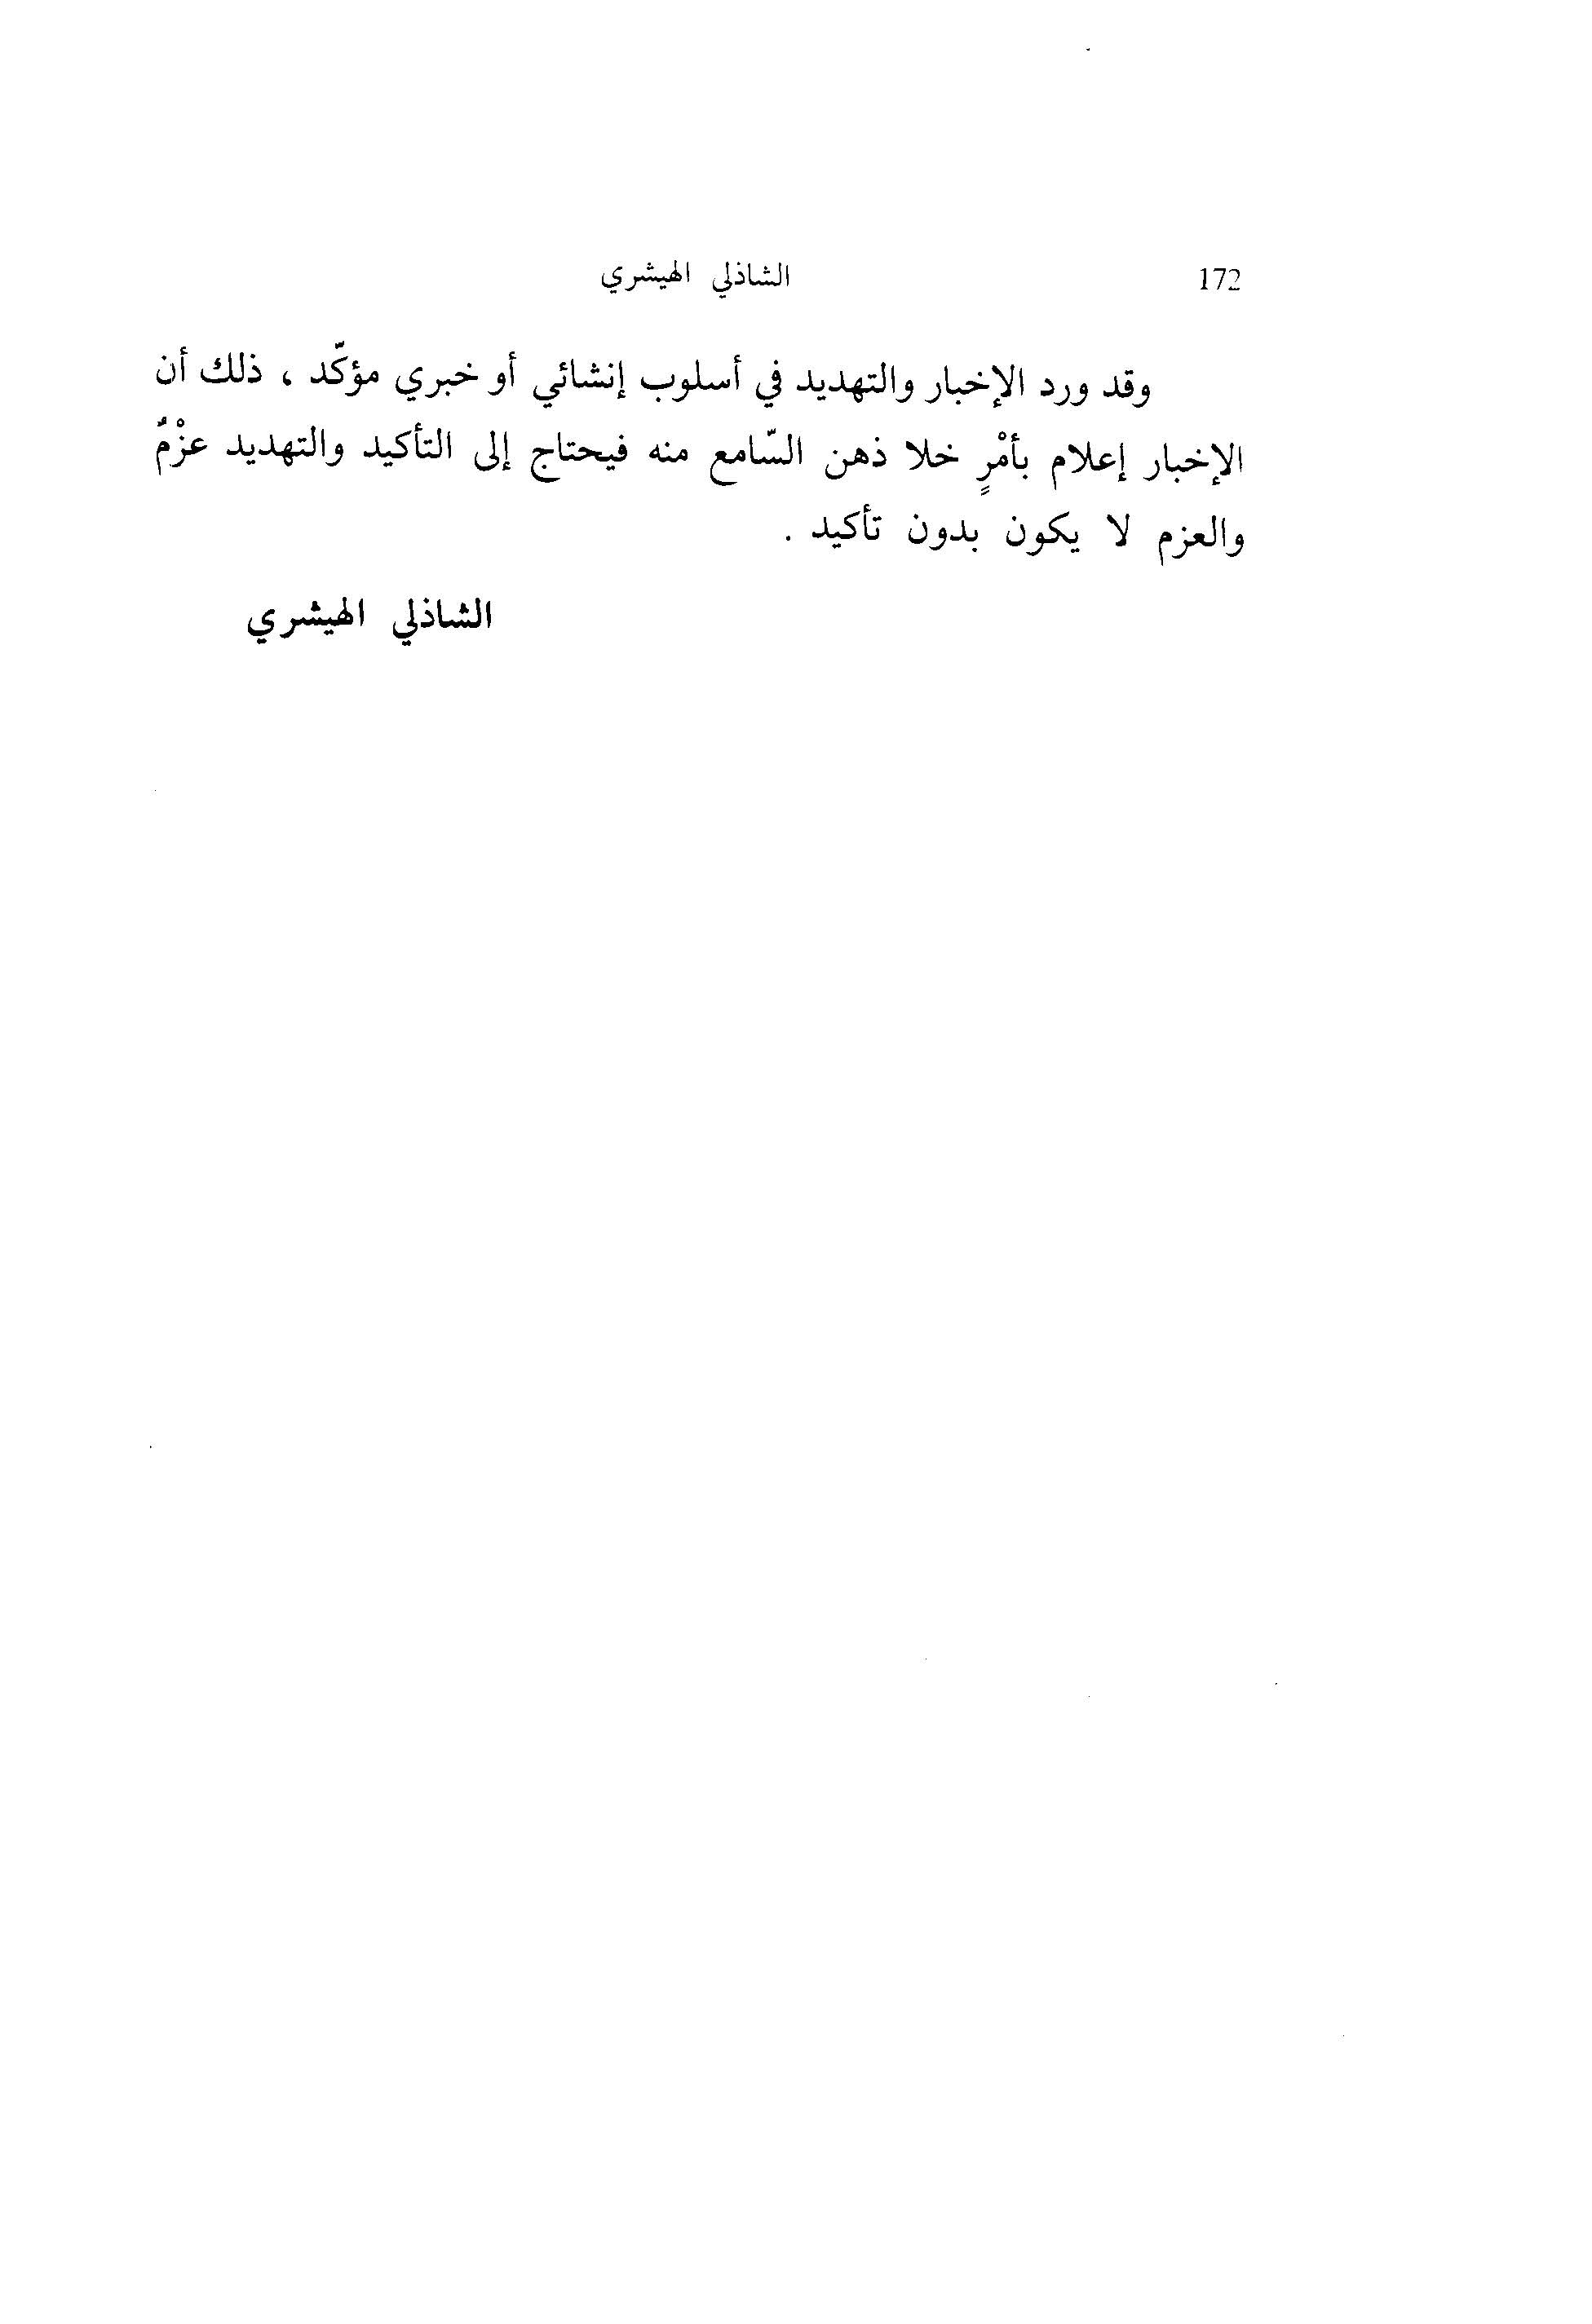 172
الشاذلي الهيشري
وقد ورد الإخبار والتهديد في أسلوب إنشائي أو خبري مؤكّد ، ذلك أن
الإخبار إعلام بأمْرٍ خلا ذهن السّامع منه فيحتاج إلى التأكيد والتهديد عزْمٌ
والعزم لا يكون بدون تأكيد .
الشاذلي الهيشري